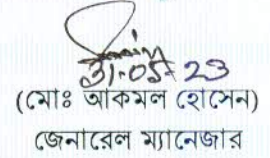 31-05-23
(মোঃ আকমল হোসেন)
জেনারেল ম্যানেজার